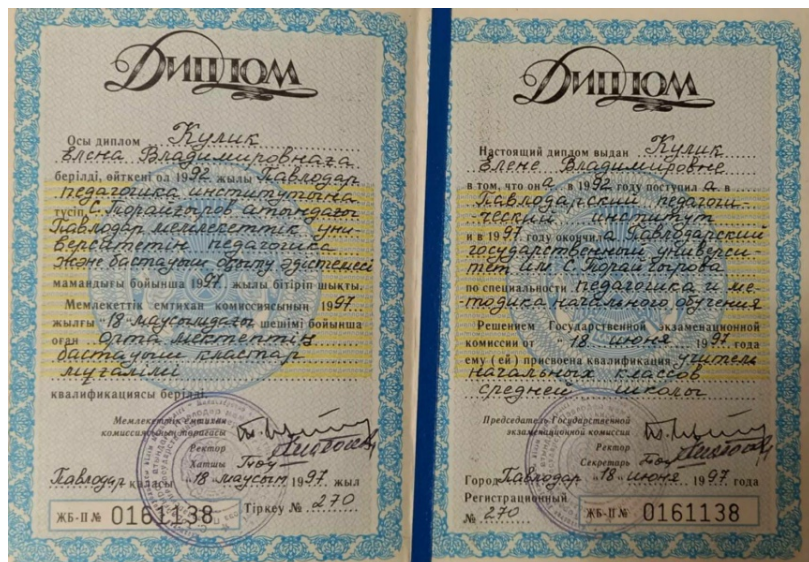 Диплом
Осы диплом Кулик
Елена Владимировнаға
берілді, өйткені ол 1992 жылы Павлодар
педагогика институтына
түсіп С.Торайғыров атындағы
Павлодар мемлекеттік уни-
верситетін педагогика
және бастауыш оқыту әдістемесі
мамандығы бойынша 1997 жылы бітіріп шықты.
Мемлекеттік емтихан комиссиясының 1997
жылғы "18" маусымдағы шешімі бойынша
оған Орта мектептің
бастауыш кластар
мұғалімі
квалификациясы берілді.
Мемлекеттік емтихан
комиссиясының төрағасы
Ректор
Хатшы
Павлодар қаласы "18" маусым 1997 жыл
Тіркеу № 270
ЖБ-II № 0161138
Диплом
Настоящий диплом выдан Кулик
Елене Владимировне
в том, что она в 1992 году поступила в
Павлодарский педагоги-
ческий институт
и в 1997 году окончила Павлодарский
государственный универси-
тет им. С.Торайгырова
по специальности педагогика и ме-
тодика начального обучения
Решением Государственной экзаменационной
комиссии от "18" июня 1997 года
ему (ей) присвоена квалификация учитель
начальных классов
средней школы
Председатель Государственной
экзаменационной комиссии
Ректор
Секретарь
Город Павлодар "18" июня 1997 года
Регистрационный
№ 270
ЖБ-II № 0161138